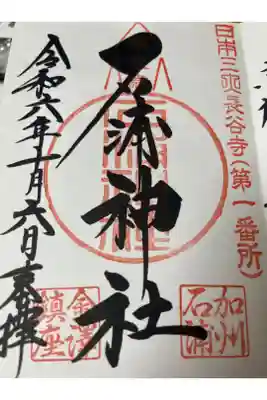 日本三 長谷寺(第一番所)
石浦神社
加州
石浦
金澤
鎮座
令和六年十月六日奉拝